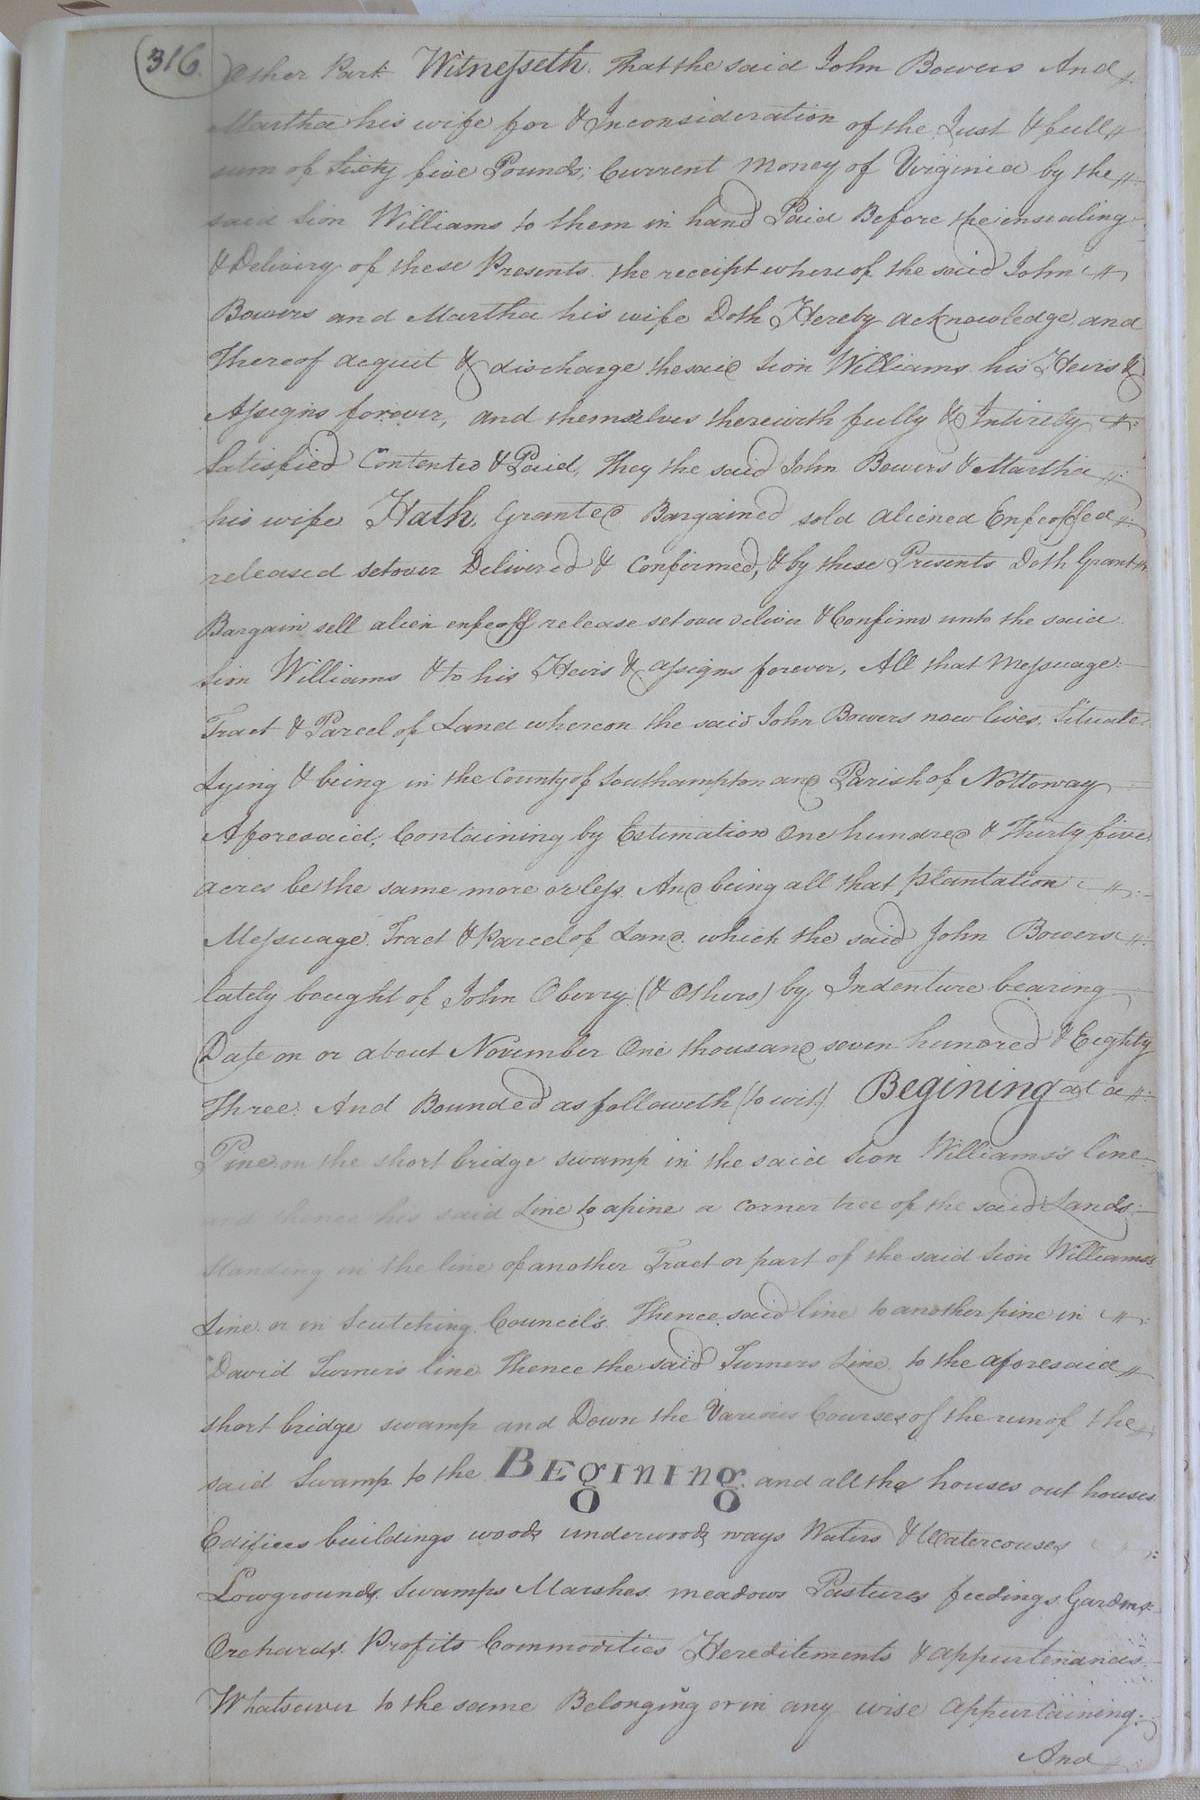 316.
Other Part Witnesseth. That the said John Bowers And
Martha his wife for & Inconsideration of the Just & full
sum of Sixty five Pounds, Current Money of Virginia by the
said Sion Williams to them in hand Paid Before the ensealing
& Delivery of these Presents the receipt whereof the said John
Bowers and Martha his wife Doth Hereby acknowledge, and
Thereof acquit & discharge the said Sion Williams his Heirs &
Assigns forever, and themselves therewith fully & Intirely
Satisfied Contented & Paid, They the said John Bowers & Martha
his wife Hath, Granted Bargained sold aliened Enfeoffed
released setover Delivered & Confirmed, & by these Presents Doth Grant
Bargain sell alien enfeoff release set over deliver & Confirm unto the said
Sion Williams & to his Heirs & assigns forever, All that Messuage
Tract & Parcel of Land whereon the said John Bowers now lives, Situate
Lying & being in the County of Southampton and Parish of Nottoway
Aforesaid, Containing by Estimation One hundred & Thirty five
acres be the same more or less. And being all that plantation
Messuage. Tract & Parcel of Land. which the said John Bowers
lately bought of John Oberry (& Others) by Indenture bearing
Date on or about November One thousand seven hundred & Eighty
Three. And Bounded as followeth (to wit) Begining at a
Pine on the short bridge swamp in the said Sion Williams's line
and thence his said Line to a pine a corner tree of the said Lands
Standing in the line of another Tract or part of the said Sion Williams's
Line or in Scutching Council's. Thence said line to another pine in
David Turner's line Thence the said Turners Line to the aforesaid
short bridge swamp and Down the Various Courses of the run of the
said Swamp to the BEgining. and all the houses out houses
Edifices buildings woods underwoods ways Waters & Watercouses
Lowgrounds. Swamps Marshes meadows Pastures feedings. Gardens
Orchards. Profits Commodities Hereditements & appurtenances
Whatsoever to the same Belonging or in any wise appurtaining.
And